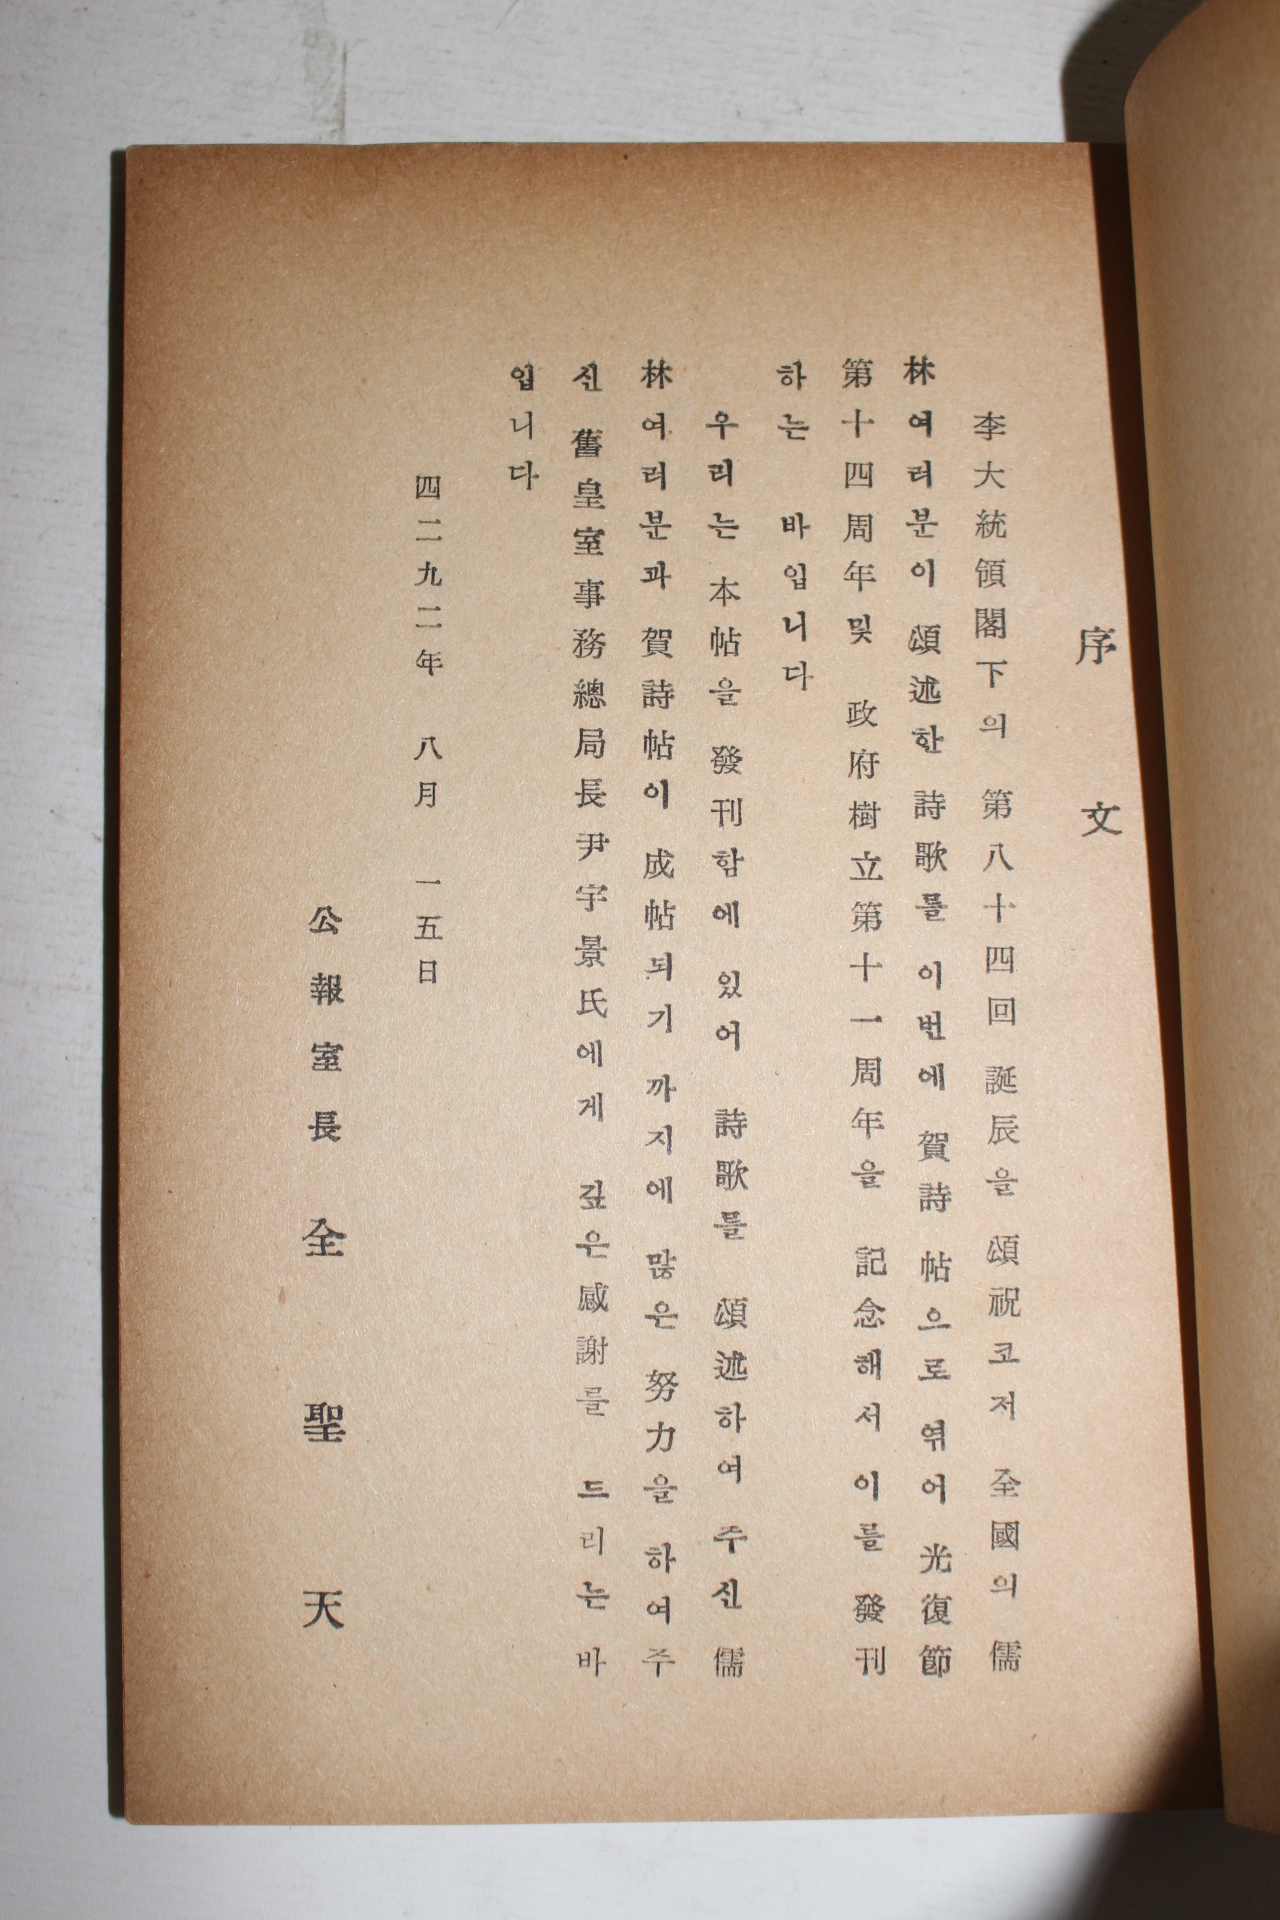 序文
李大統領閣下의 第八十四回 誕辰을 頌祝코저 全國의 儒
林여러분이 頌述한 詩歌를 이번에 賀詩帖으로 엮어 光復節
第十四周年및 政府樹立第十一周年을 記念해서 이를 發刊
하는 바입니다
우리는 本帖을 發刊함에 있어 詩歌를 頌述하여 주신 儒
林여러분과 賀詩帖이 成帖되기 까지에 많은 努力을 하여주
신 舊皇室事務總局長尹宇景氏에게 깊은感謝를 드리는바
입니다
四二九二年 八月 一五日
公報室長 全聖天